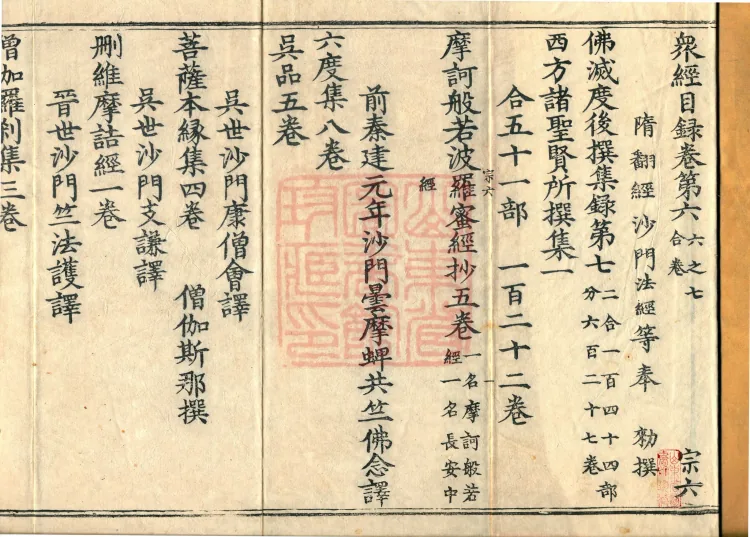 衆經目録卷第六 六之七 合卷 宗六
隋翻經沙門法經等奉 勑撰
佛滅度後撰集録第七 二合一百四十四部 分六百二十七卷
西方諸聖賢所撰集一
合五十一部 一百二十二卷
摩訶般若波羅蜜經抄五卷 一名摩訶般若經 一名長安中經
宗六 一
前秦建元年沙門曇摩蜱共竺佛念譯
六度集八卷
吳品五卷
吳世沙門康僧會譯
菩薩本縁集四卷 僧伽斯那撰
吳世沙門支謙譯
刪維摩詰經一卷
晉世沙門竺法護譯
僧伽羅刹集三卷